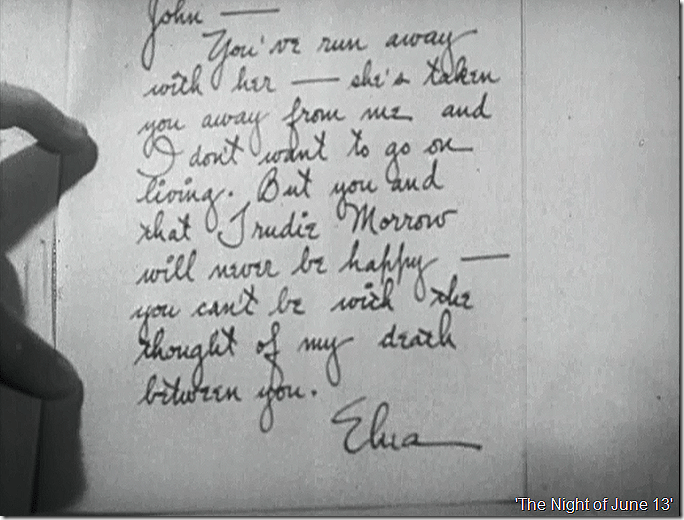 John —
You've run away
with her — she's taken
you away from me and
I don't want to go on
living. But you and
that Trudie Morrow
will never be happy —
you can't be with the
thought of my death
between you.
Elna
'The Night of June 13'